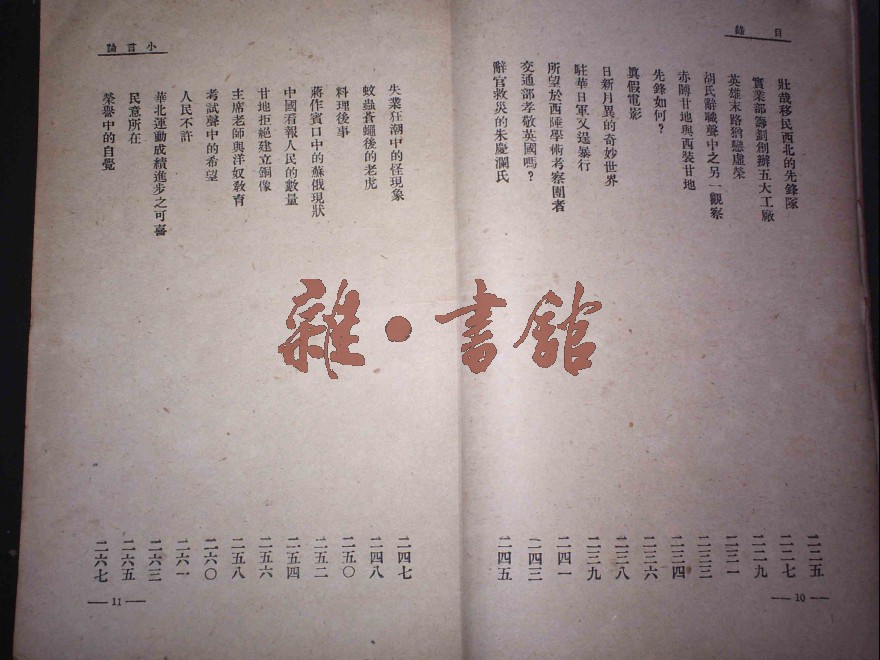 目錄
壯哉移民西北的先鋒隊 二二五
實業部籌劃創辦五大工廠 二二七
英雄末路猶戀虛榮 二二九
胡氏辭職聲中之另一觀察 二三一
赤膊甘地與西裝甘地 二三三
先鋒如何？ 二三四
眞假電影 二三六
日新月異的奇妙世界 二三八
駐華日軍又逞暴行 二三九
所望於西陲學術考察團者 二四一
交通部孝敬英國嗎？ 二四三
辭官救災的朱慶瀾氏 二四五
— 10 —
小言論
失業狂潮中的怪現象 二四七
蚊蟲蒼蠅後的老虎 二四八
料理後事 二五〇
蔣作賓口中的蘇俄現狀 二五二
中國看報人民的數量 二五四
甘地拒絕建立銅像 二五六
主席老師與洋奴敎育 二五八
考試聲中的希望 二六〇
人民不許 二六一
華北運動成績進步之可喜 二六三
民意所在 二六五
榮譽中的自覺 二六七
— 11 —
雜·書館